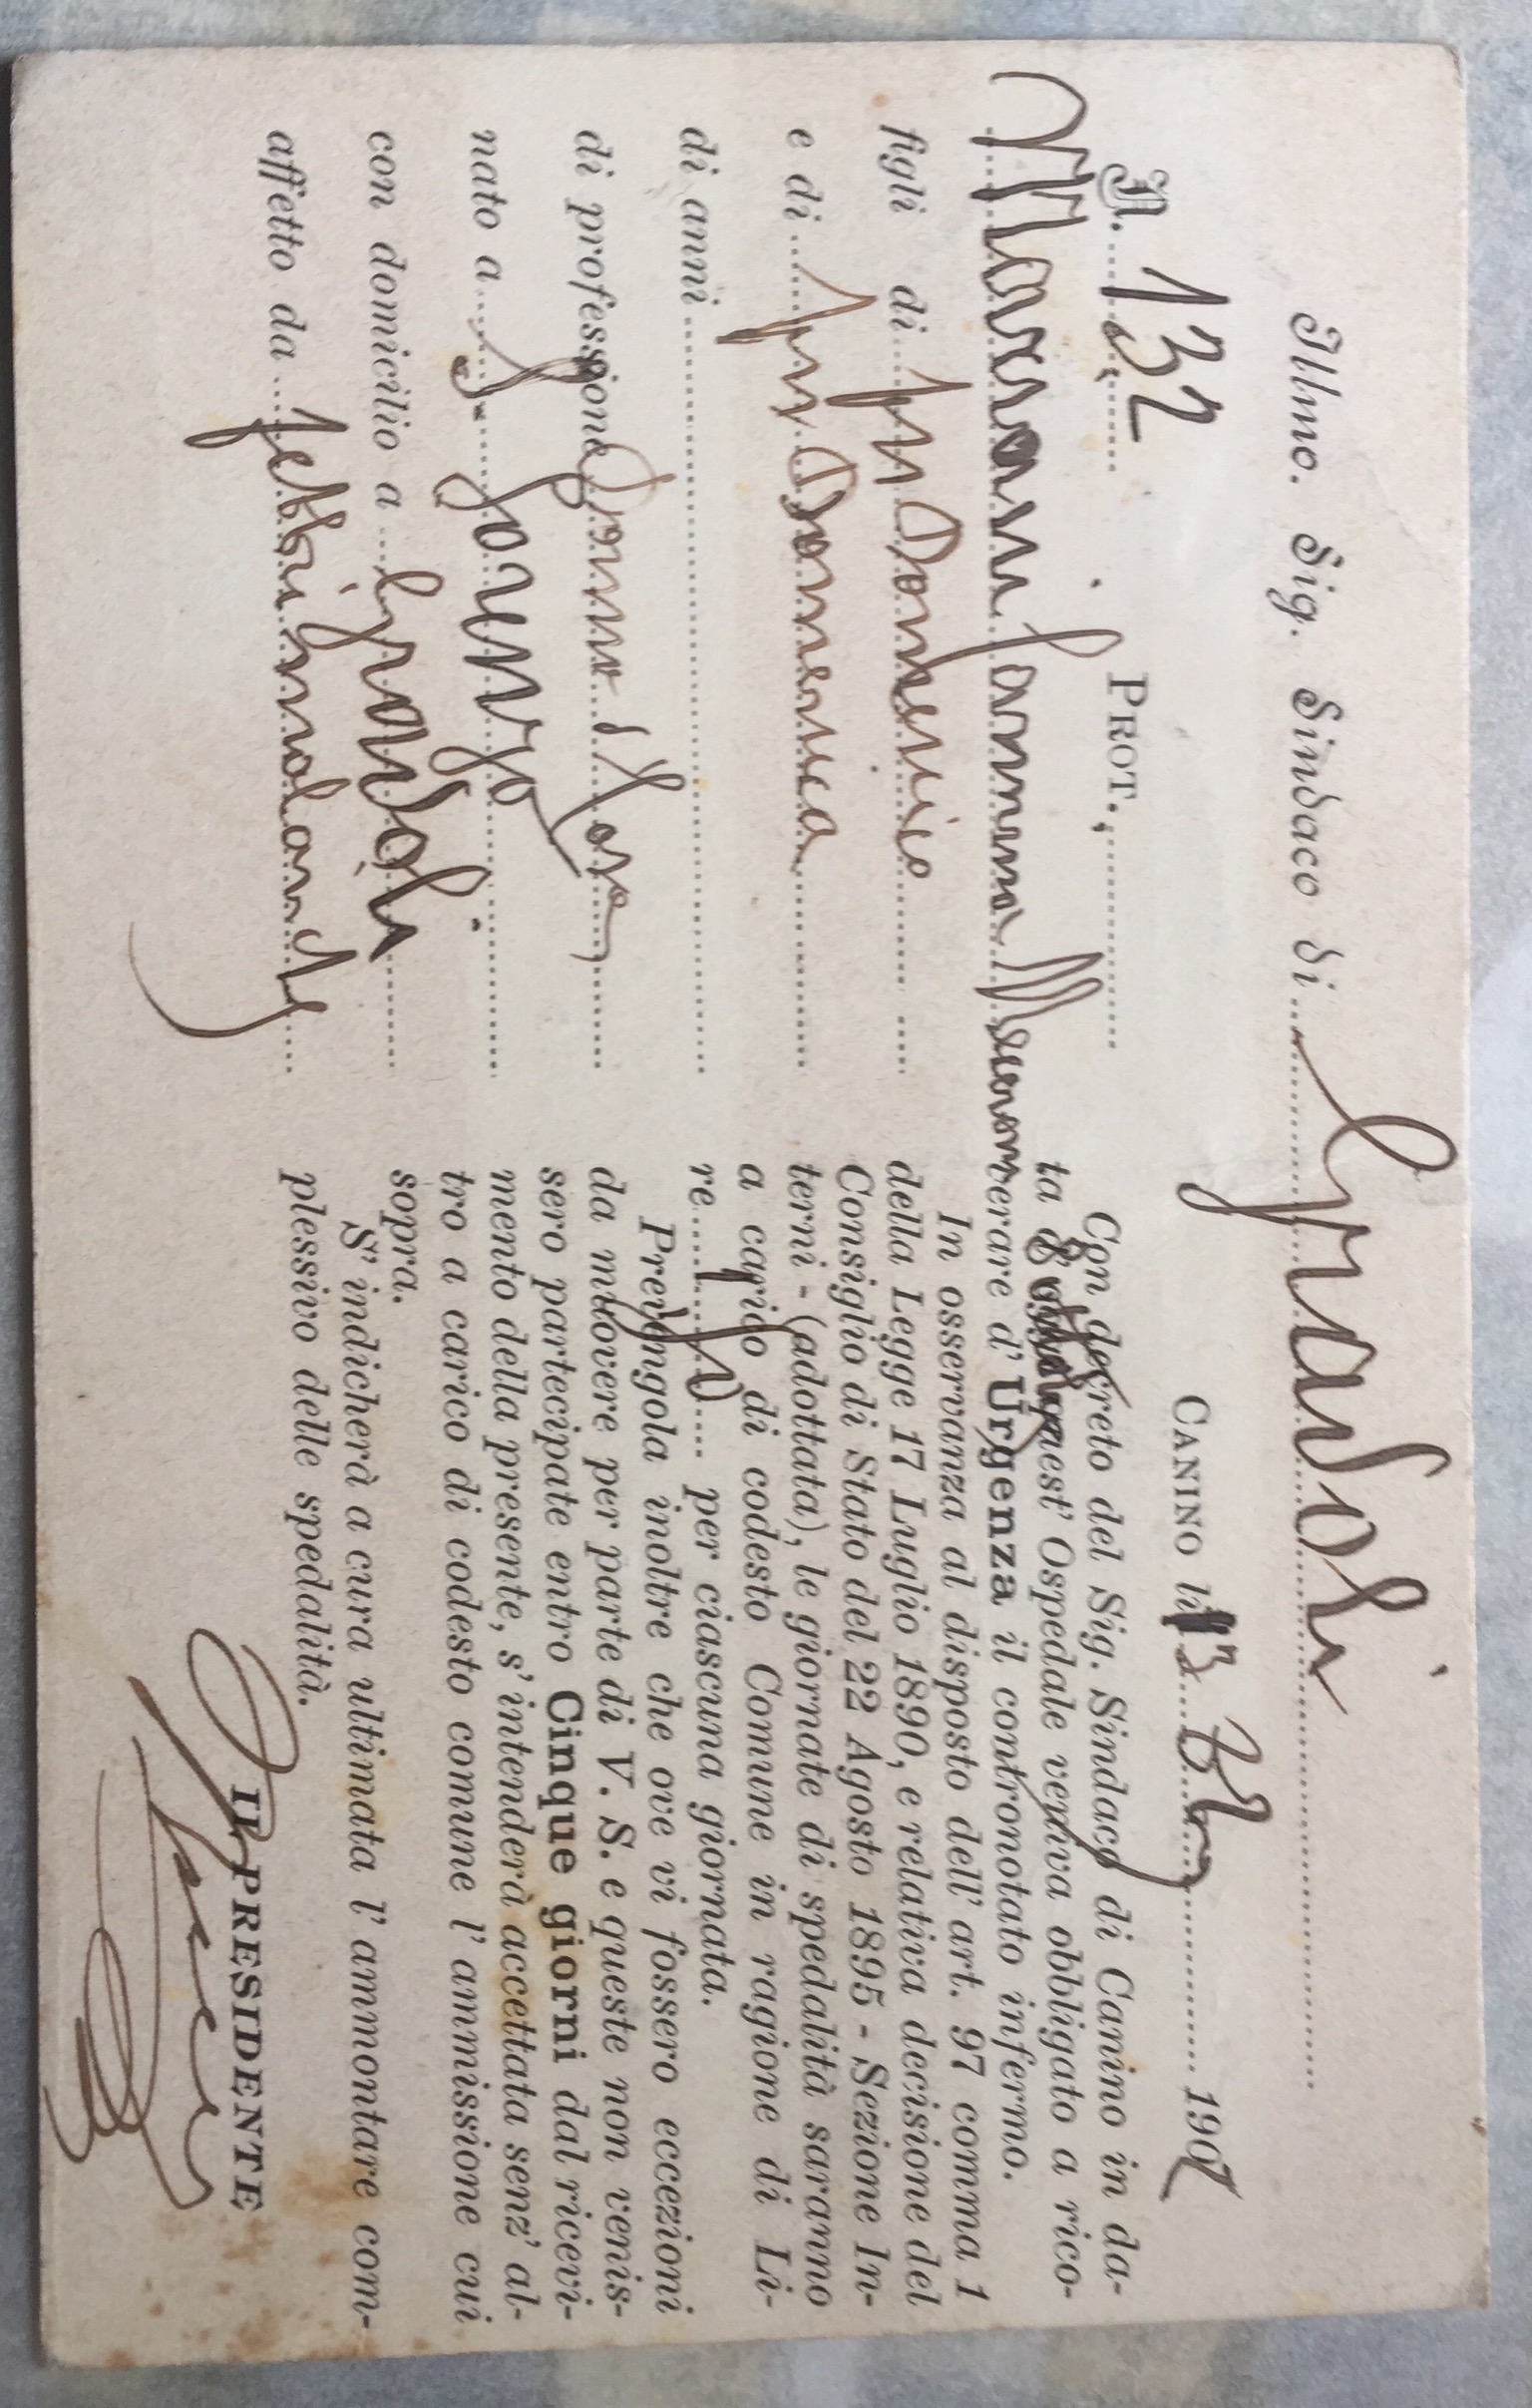 Illmo. Sig. Sindaco di Gradoli
N. 132 PROT.
Marianni Giovanna
figli di fu Domenico
e di fu Domenica
di anni
di professione Donna
nato a S. Lorenzo
con domicilio a Gradoli
affetto da febbri
CANINO li 13 1907
Con decreto del Sig. Sindaco di Canino in da-
ta quest' Ospedale veniva obbligato a rico-
verare d' Urgenza il contronotato infermo.
In osservanza al disposto dell' art. 97 comma 1
della Legge 17 Luglio 1890, e relativa decisione del
Consiglio di Stato del 22 Agosto 1895 - Sezione In-
terni - (adottata), le giornate di spedalità saranno
a carico di codesto Comune in ragione di Li-
re per ciascuna giornata.
Prevengola inoltre che ove vi fossero eccezioni
da muovere per parte di V. S. e queste non venis-
sero partecipate entro Cinque giorni dal ricevi-
mento della presente, s' intenderà accettata senz' al-
tro a carico di codesto comune l' ammissione cui
sopra.
S' indicherà a cura ultimata l' ammontare com-
plessivo delle spedalità.
IL PRESIDENTE